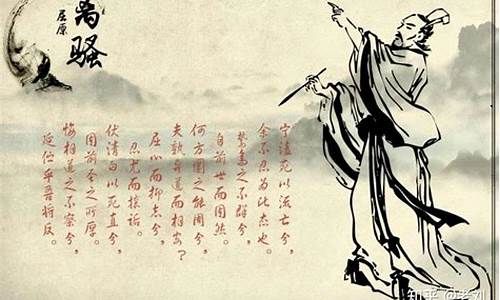 离骚
屈原
宁溘死以流亡兮，
余不忍为此态也。
鸷鸟之不群兮，
自前世而固然。
何方圜之能周兮，
夫孰异道而相安？
屈心而抑志兮，
忍尤而攘诟。
伏清白以死直兮，
固前圣之所厚。
悔相道之不察兮，
延伫乎吾将反。
知乎 @老刘